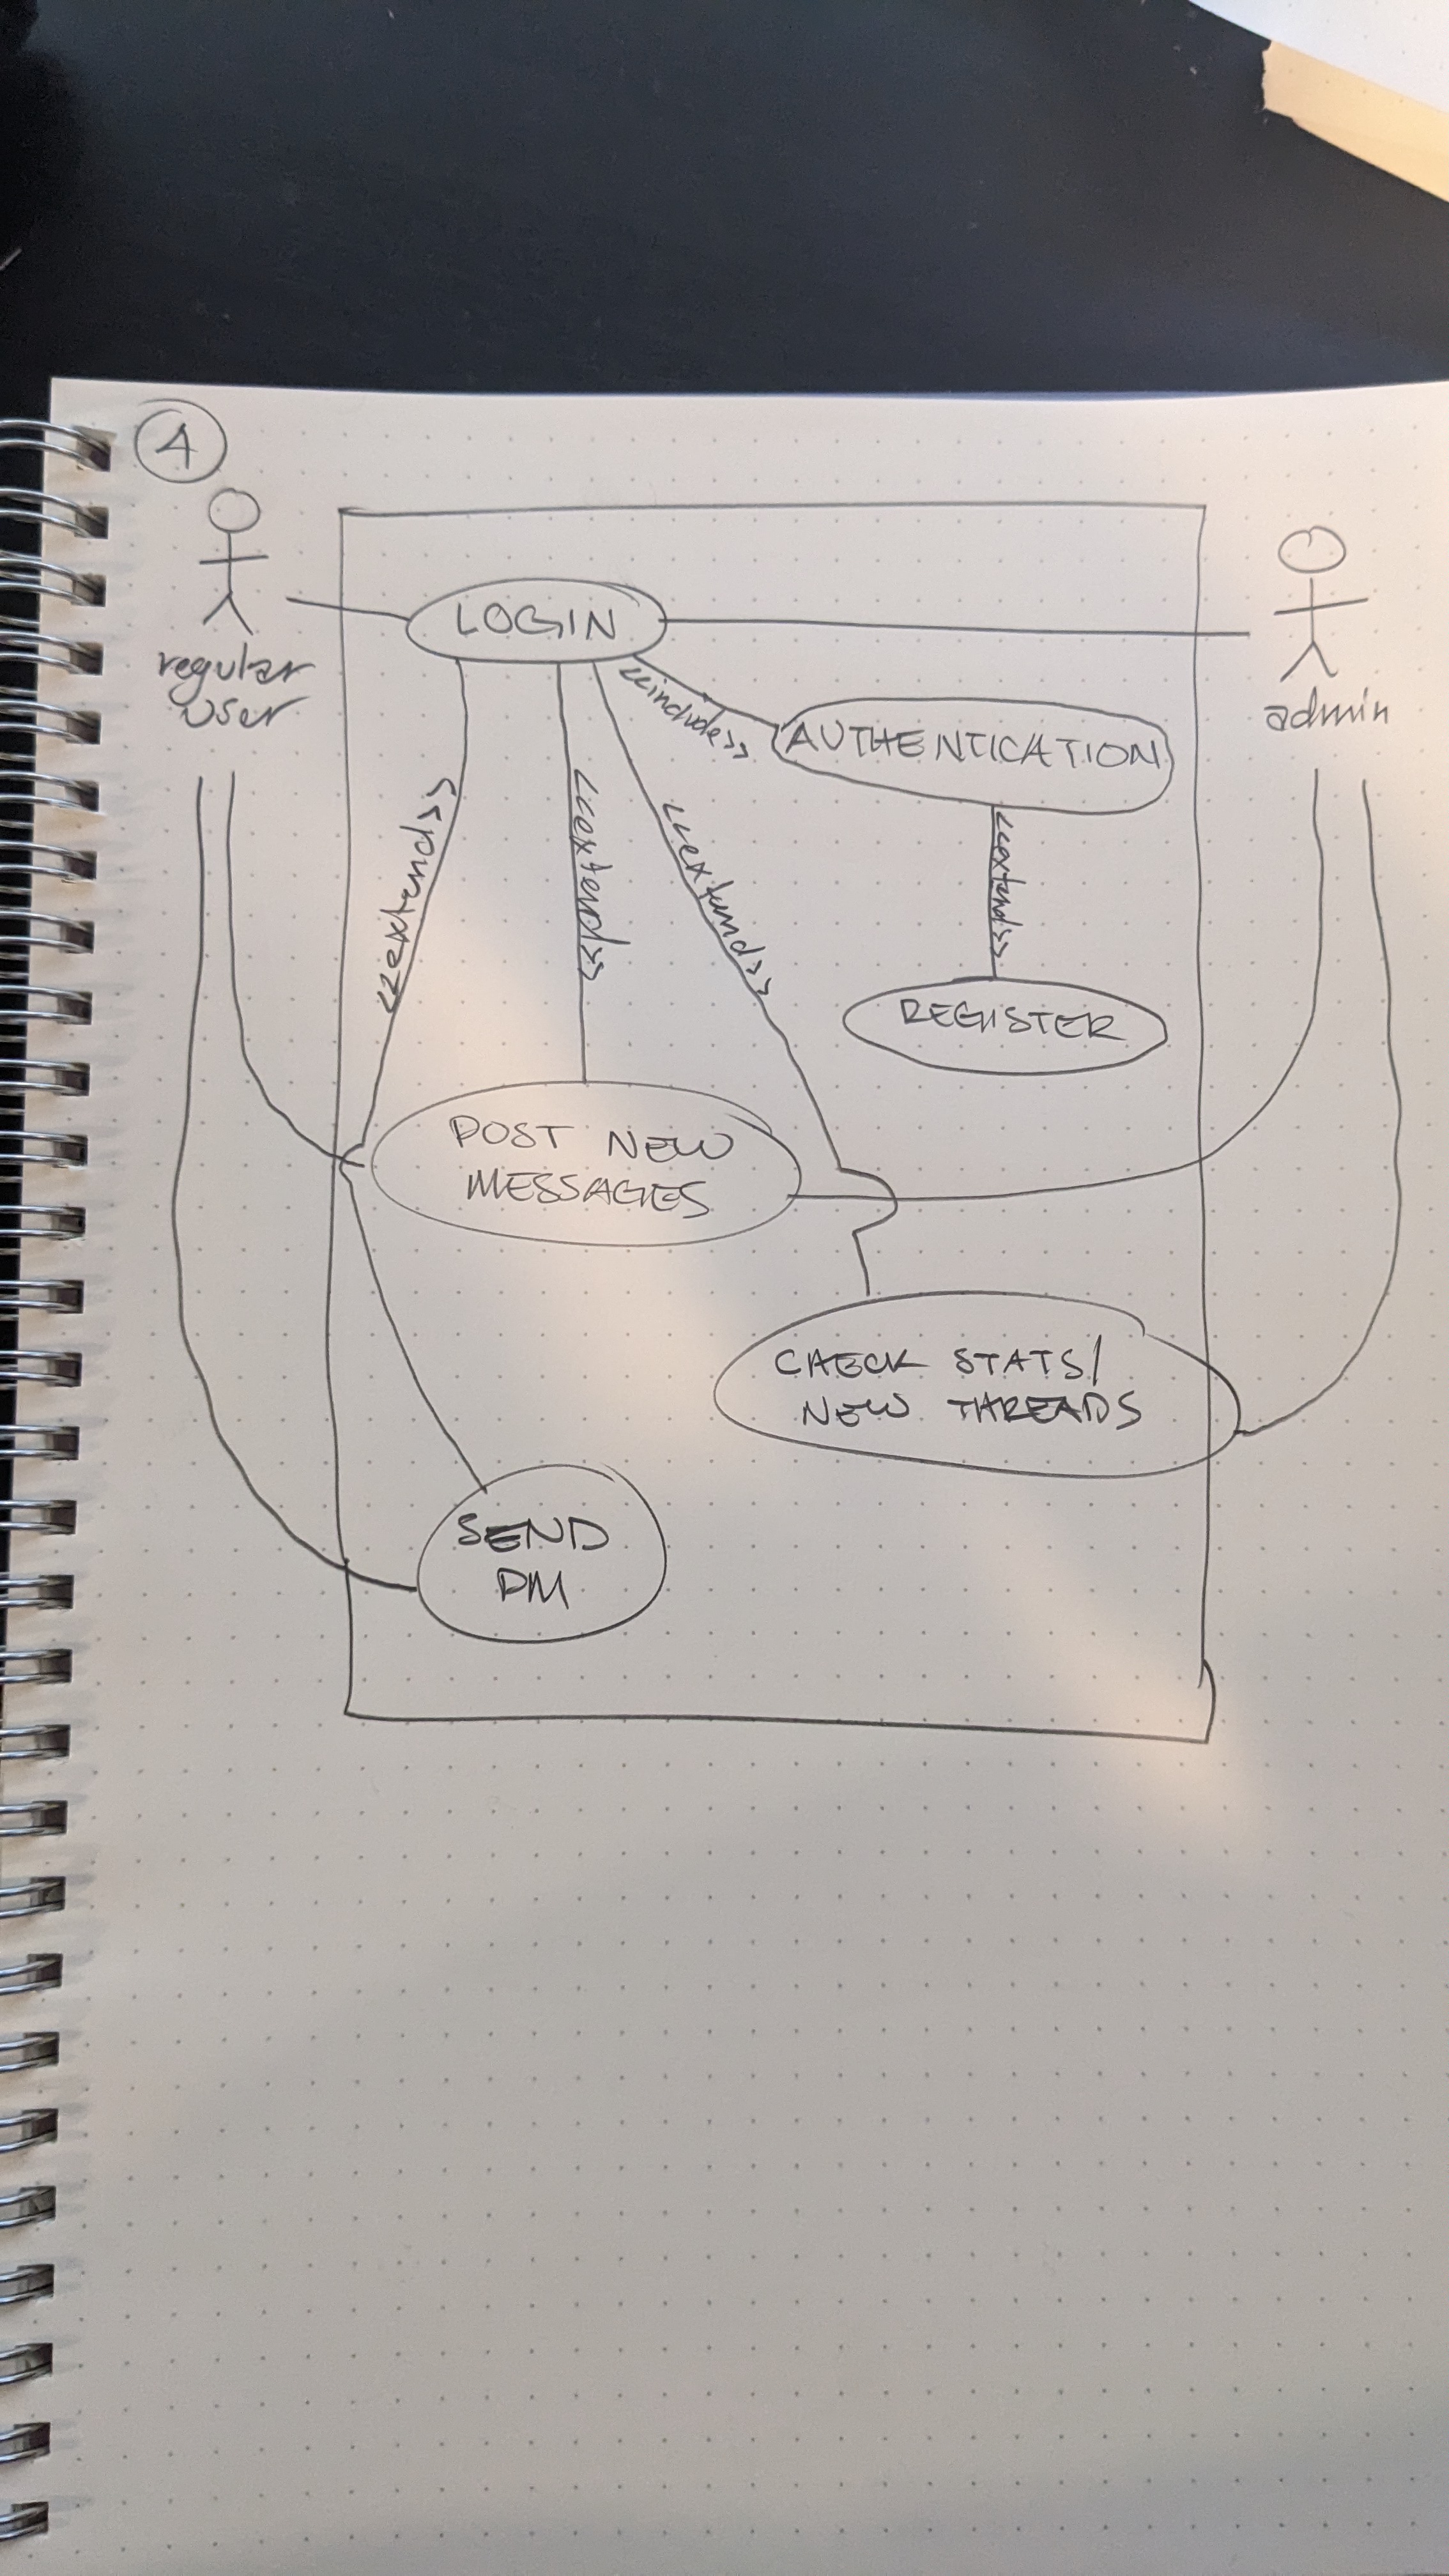 4
regular
user
LOGIN
admin
<<include>>
AUTHENTICATION
<<extend>>
<<extend>>
<<extend>>
<<extend>>
REGISTER
POST NEW
MESSAGES
CHECK STATS/
NEW THREADS
SEND
DM